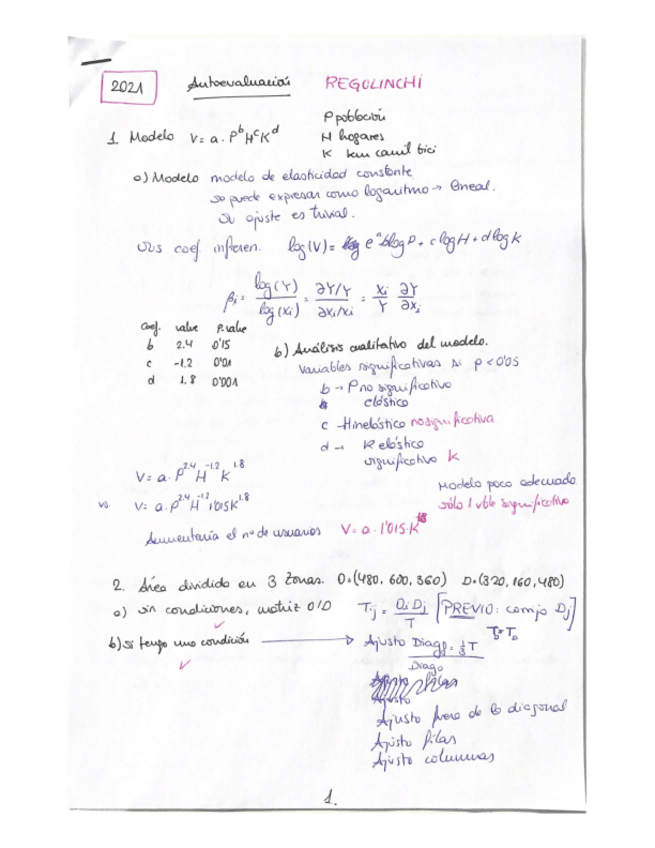 2021 Autoevaluación REGOLINCHI
1. Modelo V= a. P^b H^c K^d
P población
H hogares
K km carril bici
a) Modelo modelo de elasticidad constante
se puede expresar como logaritmo → lineal.
su ajuste es trivial.
sus coef inferen. log(V)= e^a blogP + clogH + dlogK
βi = log(Y)/log(xi) = ∂Y/Y / ∂xi/xi = xi/Y ∂Y/∂xi
Coef. value P.value
b 2.4 0'15
c -1.2 0'01
d 1.8 0'001
b) Análisis cualitativo del modelo.
Variables significativas si p<0'05
b → P no significativo
elástico
c - H inelástico no significativa
d → K elástico
significativo K
V= a. P^2.4 H^-1.2 K^1.8
vs V= a. P^2.4 H^-1.2 1'015K^1.8
Modelo poco adecuado
sólo 1 vble significativo
Aumentaría el nº de usuarios V= a. 1'015.K^1.8
2. Área dividido en 3 zonas. O=(480, 600, 360) D=(320, 160, 480)
a) sin condiciones, matriz O/D Tij = Oi Dj / T [PREVIO: corrijo Dj]
T_D=T_O
b) si tengo una condición → Ajusto Diag = 1/3 T / Diago
Ajusto fuera de la diagonal
Ajusto filas
Ajusto columnas
1.